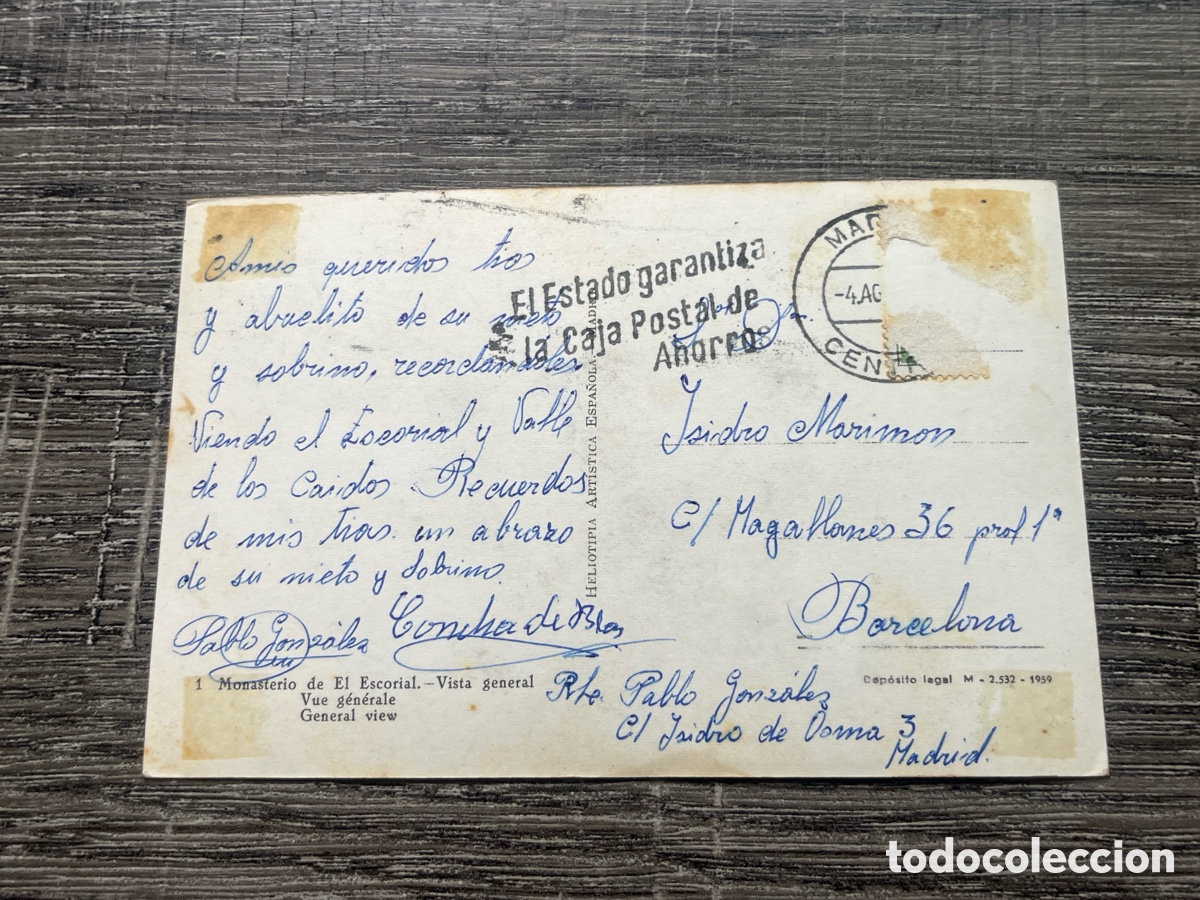 A mis queridos tios
y abuelito de su nieto
y sobrino, recordandoles
Viendo el Escorial y Valle
de los Caidos. Recuerdos
de mis tias un abrazo
de su nieto y sobrino.
Pablo González
Concha de Blas
1 Monasterio de El Escorial.—Vista general
Vue générale
General view
HELIOTIPIA ARTÍSTICA ESPAÑOLA
El Estado garantiza
la Caja Postal de
Ahorros
MAD
-4.AG
CEN
Isidro Marimon
C/ Magallanes 36 pral 1ª
Barcelona
Depósito legal M - 2.532 - 1959
Rte. Pablo González
C/ Isidro de Osma 3
Madrid.
todocoleccion